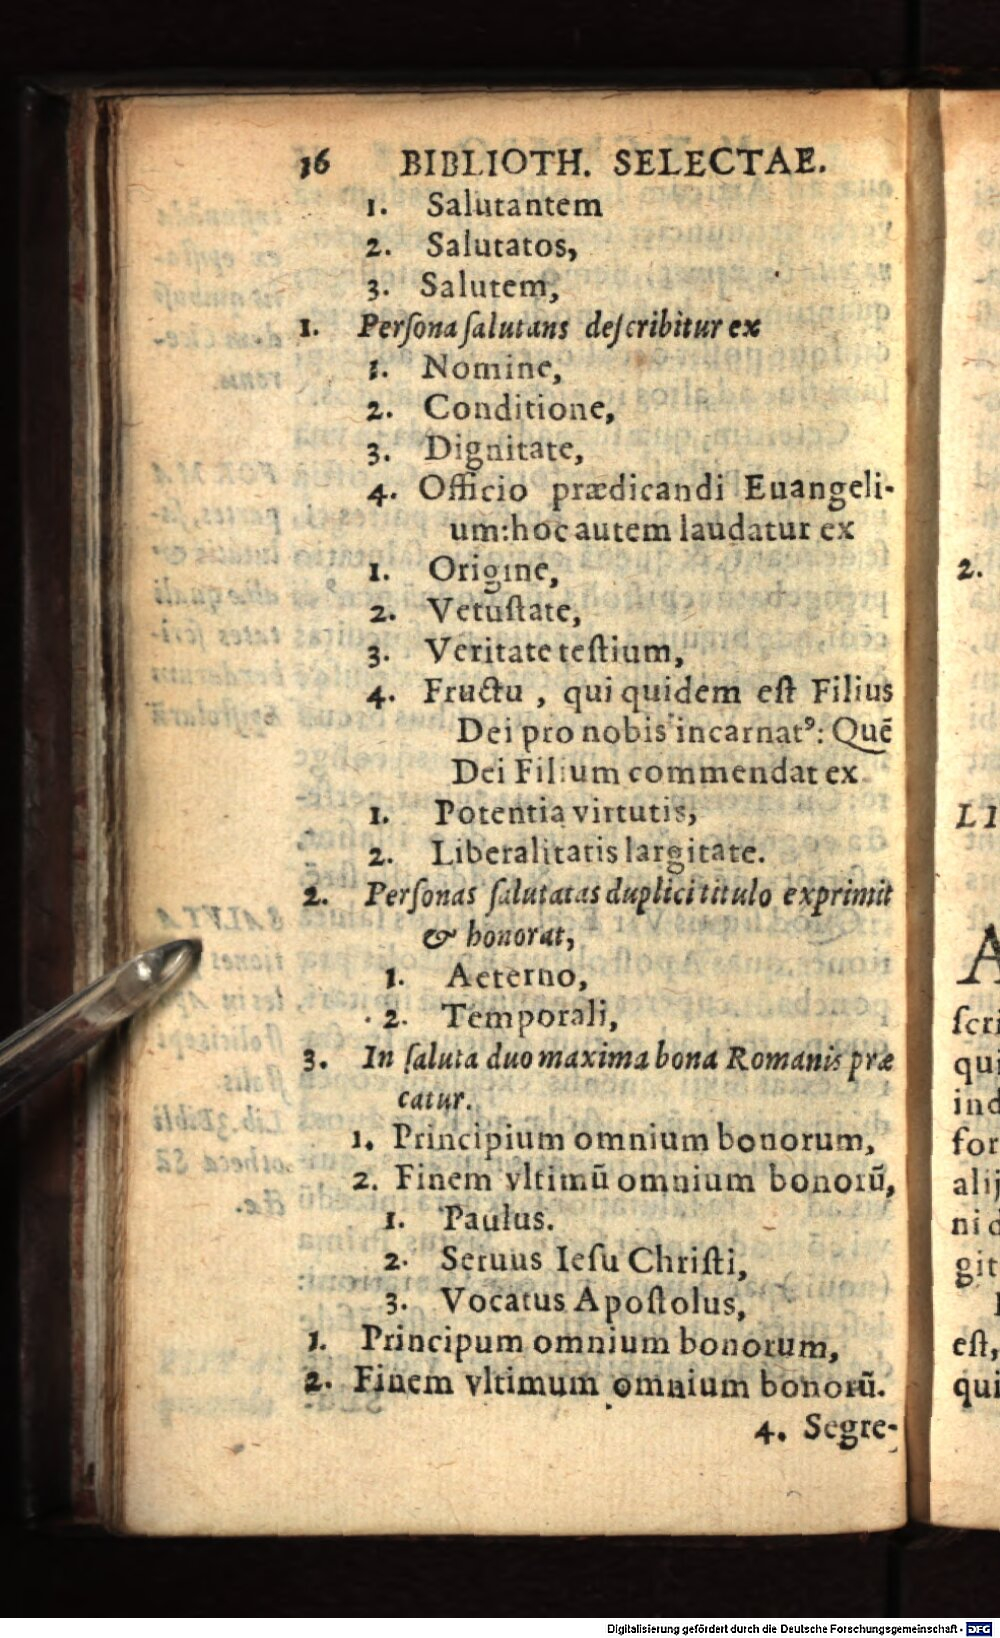 16 BIBLIOTH. SELECTAE.
1. Salutantem
2. Salutatos,
3. Salutem,
1. Perſona ſalutans deſcribitur ex
1. Nomine,
2. Conditione,
3. Dignitate,
4. Officio prædicandi Euangeli-
um: hoc autem laudatur ex
1. Origine,
2. Vetuſtate,
3. Veritate teſtium,
4. Fructu, qui quidem eſt Filius
Dei pro nobis incarnatꝰ: Quē
Dei Filium commendat ex
1. Potentia virtutis,
2. Liberalitatis largitate.
2. Perſonas ſalutatas duplici titulo exprimit
& honorat,
1. Aeterno,
2. Temporali,
3. In ſaluta duo maxima bona Romanis præ
catur.
1. Principium omnium bonorum,
2. Finem vltimū omnium bonorū,
1. Paulus.
2. Seruus Ieſu Chriſti,
3. Vocatus Apoſtolus,
1. Principum omnium bonorum,
2. Finem vltimum omnium bonorū.
4. Segre-
2.
LI
A
ſcri
qui
ind
for
alij
ni d
git
eſt,
qui
Digitalisierung gefördert durch die Deutsche Forschungsgemeinschaft - DFG